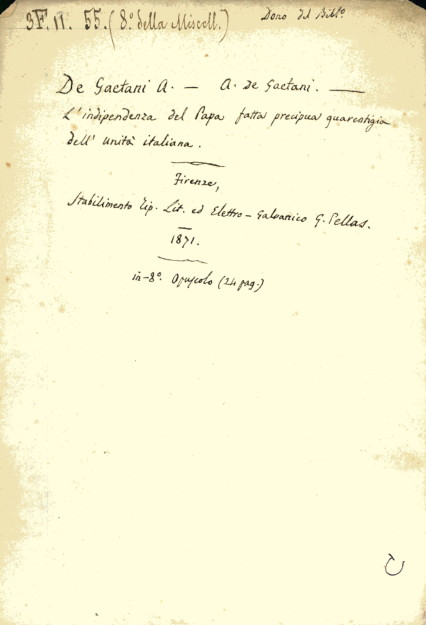 3F. 11. 55. (8º della Miscell.) Dono del Biblº
De Gaetani A. — A. de Gaetani. —
L'indipendenza del Papa fatta precipua guarentigia
dell'unità italiana.
Firenze,
Stabilimento Tip. Lit. ed Elettro-Galvanico G. Pellas.
1871.
in-8º. Opuscolo (24 pag.)